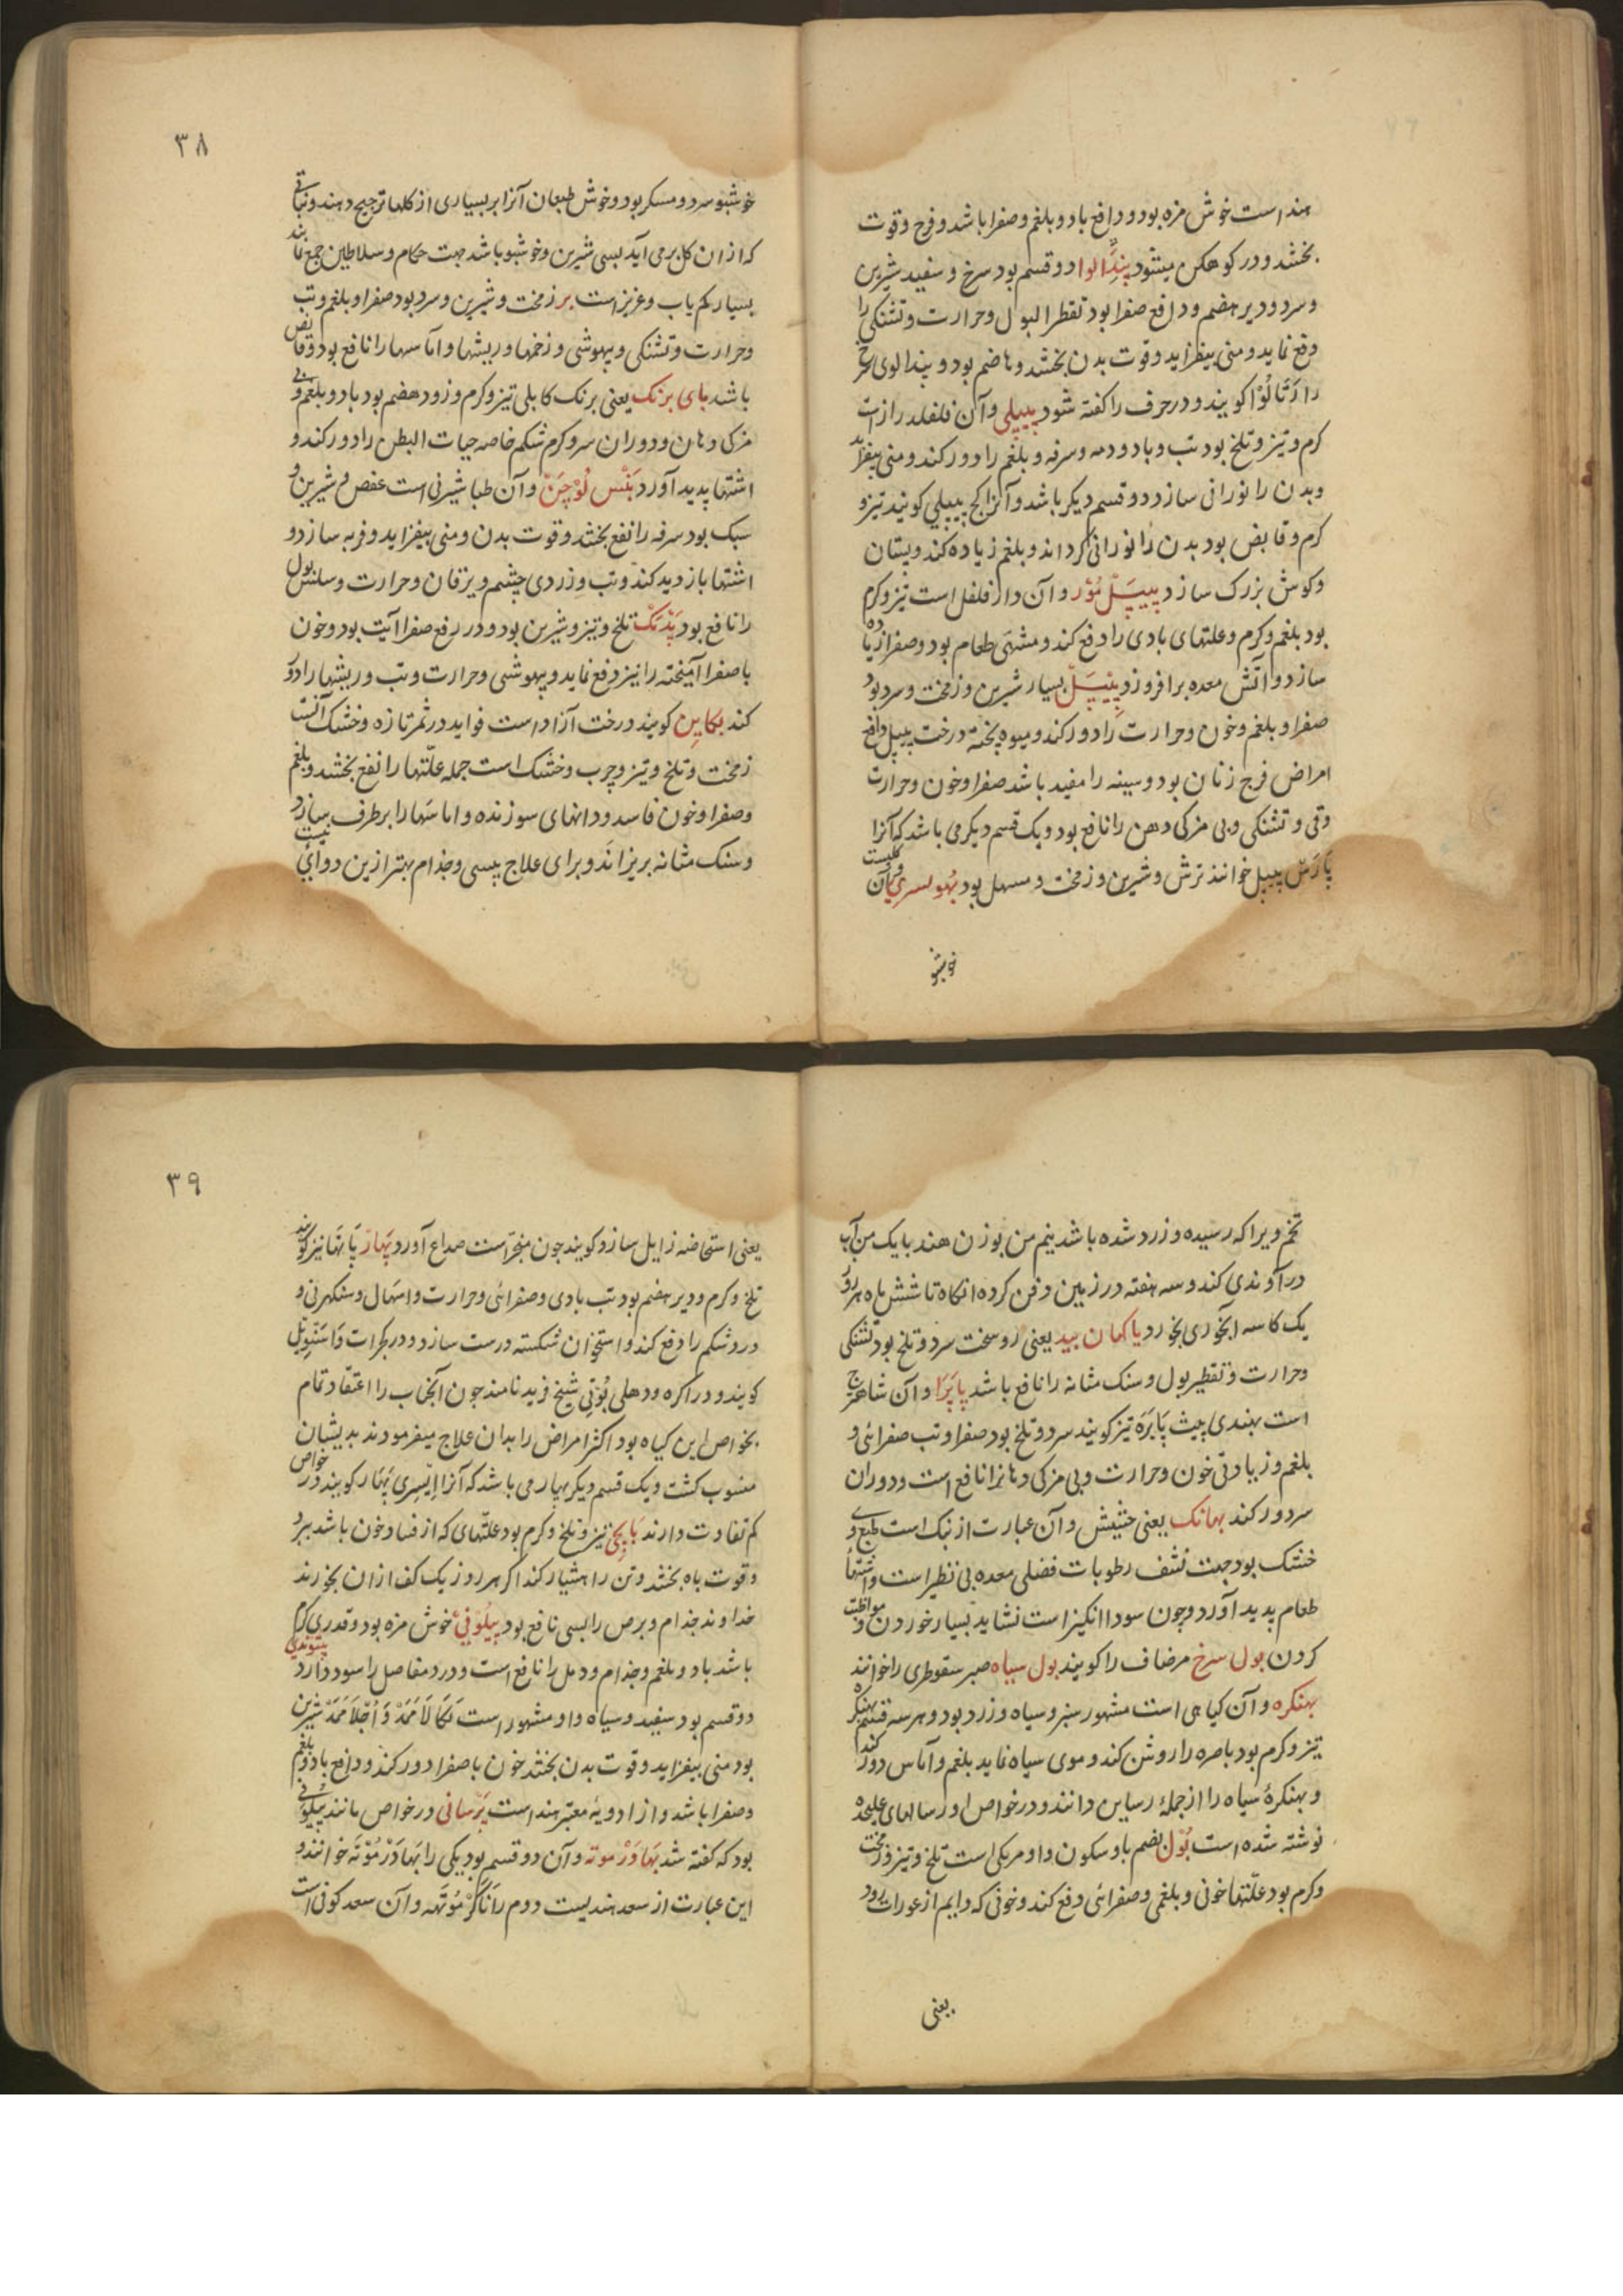 هند است خوش مزه بود و دافع باد و بلغم و صفرا باشد و فرح و قوت
بخشد و در کوهکن میشود پنڈالوا دو قسم بود سرخ و سفید شیرین
و سرد و دیر هضم و دافع صفرا بود تقطر البول و حرارت و تشنکی را
دفع نماید و منی بیفزاید و قوت بدن بخشد و هاضم بود و پندالوی سرخ
را رتالو کویند و در حرف را کفته شود پیپلی و آن فلفلدراز است
کرم و تیز و تلخ بود تب و باد و دمه و سرفه و بلغم را دور کند و منی بیفزاید
و بدن را نورانی سازد دو قسم دیکر باشد و آنرا کج پیپلی کویند تیز و
کرم و قابض بود بدن را نورانی کرداند و بلغم زیاده کند و پستان
و کوش بزرک سازد پیپل مور و آن دار فلفل است تیز و کرم
بود بلغم و کرم و علتهای بادی را دفع کند و مشتهی طعام بود و صفرا زیاده
سازد و آتش معده برافروزد پیپل بسیار شیرین و زمخت و سرد بود
صفرا و بلغم و خون و حرارت را دور کند و میوه پخته درخت پیپل دافع
امراض فرج زنان بود و سینه را مفید باشد صفرا و خون و حرارت
و قی و تشنکی و بی مزکی دهن را نافع بود و یک قسم دیکر می باشد که آنرا
پارس پیپل خوانند ترش و شیرین و زمخت و مسهل بود بهولسری و آن کلیست
خوشبو
۳۸
خوشبو سرد و مسکر بود و خوش طبعان آنرا بر بسیاری از کلها ترجیح دهند و نباتی
که از ان کل برمی آید بسی شیرین و خوشبو باشد جهت حکام و سلاطین جمع نمایند
بسیار کم یاب و عزیز است بر زمخت و شیرین و سرد بود صفرا و بلغم و تب
و حرارت و تشنکی و بیهوشی و زخمها و ریشها و آماسها را نافع بود و قابض
باشد بای برنک یعنی برنک کابلی تیز و کرم و زود هضم بود باد و بلغم و بی
مزکی دهان و دوران سر و کرم شکم خاصه حیات البطن را دور کند و
اشتها پدید آورد بنس لوچن و آن طباشیر نی است عفص و شیرین و
سبک بود سرفه را نفع بخشد و قوت بدن و منی بیفزاید و فربه سازد و
اشتها بازدید کند و تب و زردی چشم و یرقان و حرارت و سلس بول
را نافع بود پدتک تلخ و تیز و شیرین بود و در رفع صفرا آیت بود و خون
با صفرا آمیخته را نیز دفع نماید و بیهوشی و حرارت و تب و ریشها را دور
کند بکاین کویند درخت آزاد است فواید در ثمر تازه و خشک آنست
زمخت و تلخ و تیز و چرب و خشک است جمله علتها را نفع بخشد و بلغم
و صفرا و خون فاسد و دانهای سوزنده و اماسها را برطرف سازد
و سنک مثانه بریزاند و برای علاج پیسی و جذام بهتر ازین دوایی نیست
تخم ویرا که رسیده و زرد شده باشد نیم من بوزن هند با یک من آب
در آوندی کند و سه هفته در زمین دفن کرده انکاه تا شش ماه هر روز
یک کاسه ابخوری بخورد پاکهان بید یعنی روسخت سرد و تلخ بود تشنکی
و حرارت و تقطیر بول و سنک مثانه را نافع باشد پاپرا و آن شاهترج
است بهندی پیت پاپره نیز کویند سرد و تلخ بود صفرا و تب صفرائی و
بلغم و زیادتی خون و حرارت و بی مزکی دهانرا نافع است و دوران
سر دور کند بهانک یعنی حشیش و آن عبارت از بنک است طبع وی
خشک بود جهت نشف رطوبات فضلی معده بی نظیر است و اشتهای
طعام پدید آورد و چون سودا انکیز است نشاید بسیار خوردن و مواظبت
کردن بول سرخ مرصاف را کویند بول سیاه صبر سقوطری را خوانند
بهنکره و آن کیاهی است مشهور سبز و سیاه و زرد بود و هر سه قسم بهنکره
تیز و کرم بود باصره را روشن کند و موی سیاه نماید بلغم و آماس دور کند
و بهنکرهٔ سیاه را از جملهٔ رساین دانند و در خواص او رسالهای علیحده
نوشته شده است بول بضم با و سکون واو مرمکی است تلخ و تیز و زمخت
و کرم بود علتهاء خونی و بلغمی و صفرائی دفع کند و خونی که دایم از عورات رود
یعنی
۳۹
یعنی استحاضه زایل سازد و کویند چون مبخر است صداع آورد پهار پاتها نیز کویند
تلخ و کرم و دیر هضم بود تب بادی و صفرائی و حرارت و اسهال و سنکهرنی و
درد شکم را دفع کند و استخوان شکسته درست سازد و در کجرات
کویند و در اکره و دهلی بوتی شیخ فرید نامند چون آنجناب را اعتقاد تمام
بخواص این کیاه بود اکثر امراض را بدان علاج میفرمودند بدیشان
منسوب کشت و یک قسم دیکر پهار می باشد که آنرا ایسری پهار کویند در خواص
کم تفاوت دارند باپچی تیز و تلخ و کرم بود علتهای که از فساد خون باشد ببرد
و قوت باه بخشد و تن را هشیار کند اکر هر روز یک کف از ان بخورند
خداوند جذام و برص را بسی نافع بود پیلونی خوش مزه بود و قدری کرم
باشد باد و بلغم و جذام و دمل را نافع است و درد مفاصل را سود دارد
دو قسم بود سفید و سیاه و او مشهور است شیرین
بود منی بیفزاید و قوت بدن بخشد خون با صفرا دور کند و دافع باد و بلغم
و صفرا باشد و از ادویهٔ معتبر هند است پرسانی در خواص مانند پیلونی
بود که کفته شد بهادر موته و آن دو قسم بود یکی را بهادر موته خوانند و
این عبارت از سعد هندیست دوم را ناکر موتهه و آن سعد کوفی است